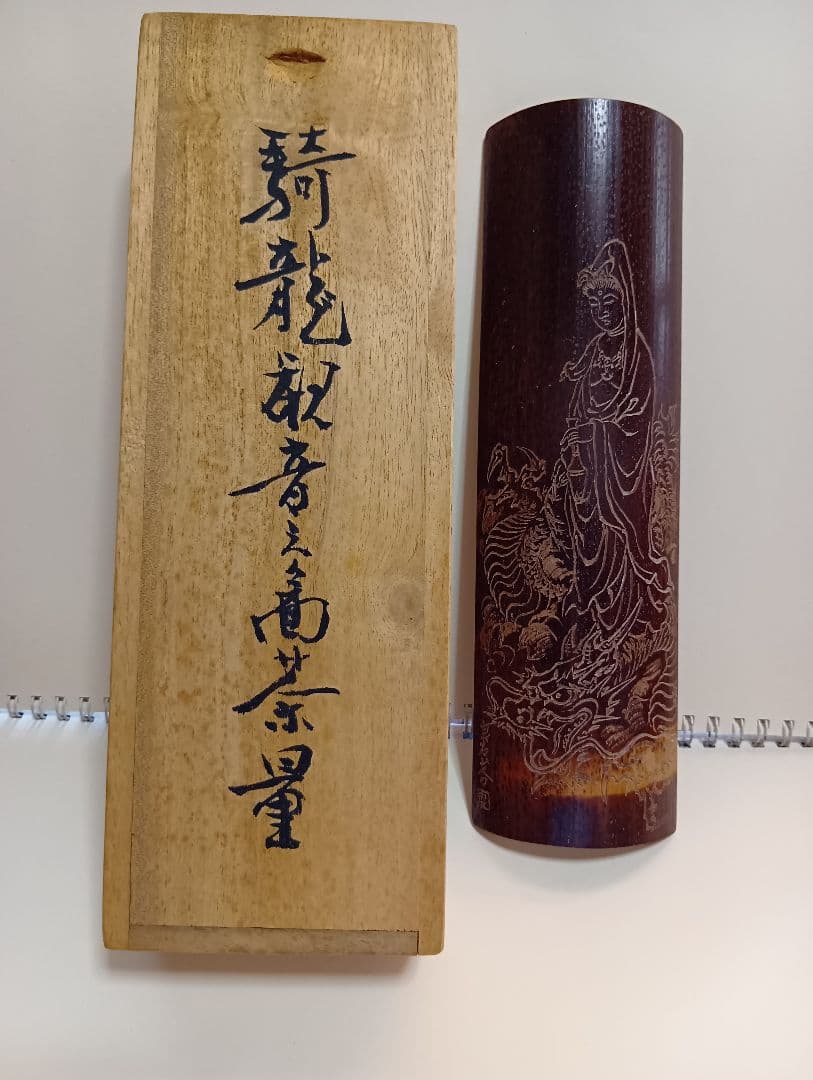 騎龍観音之図茶量